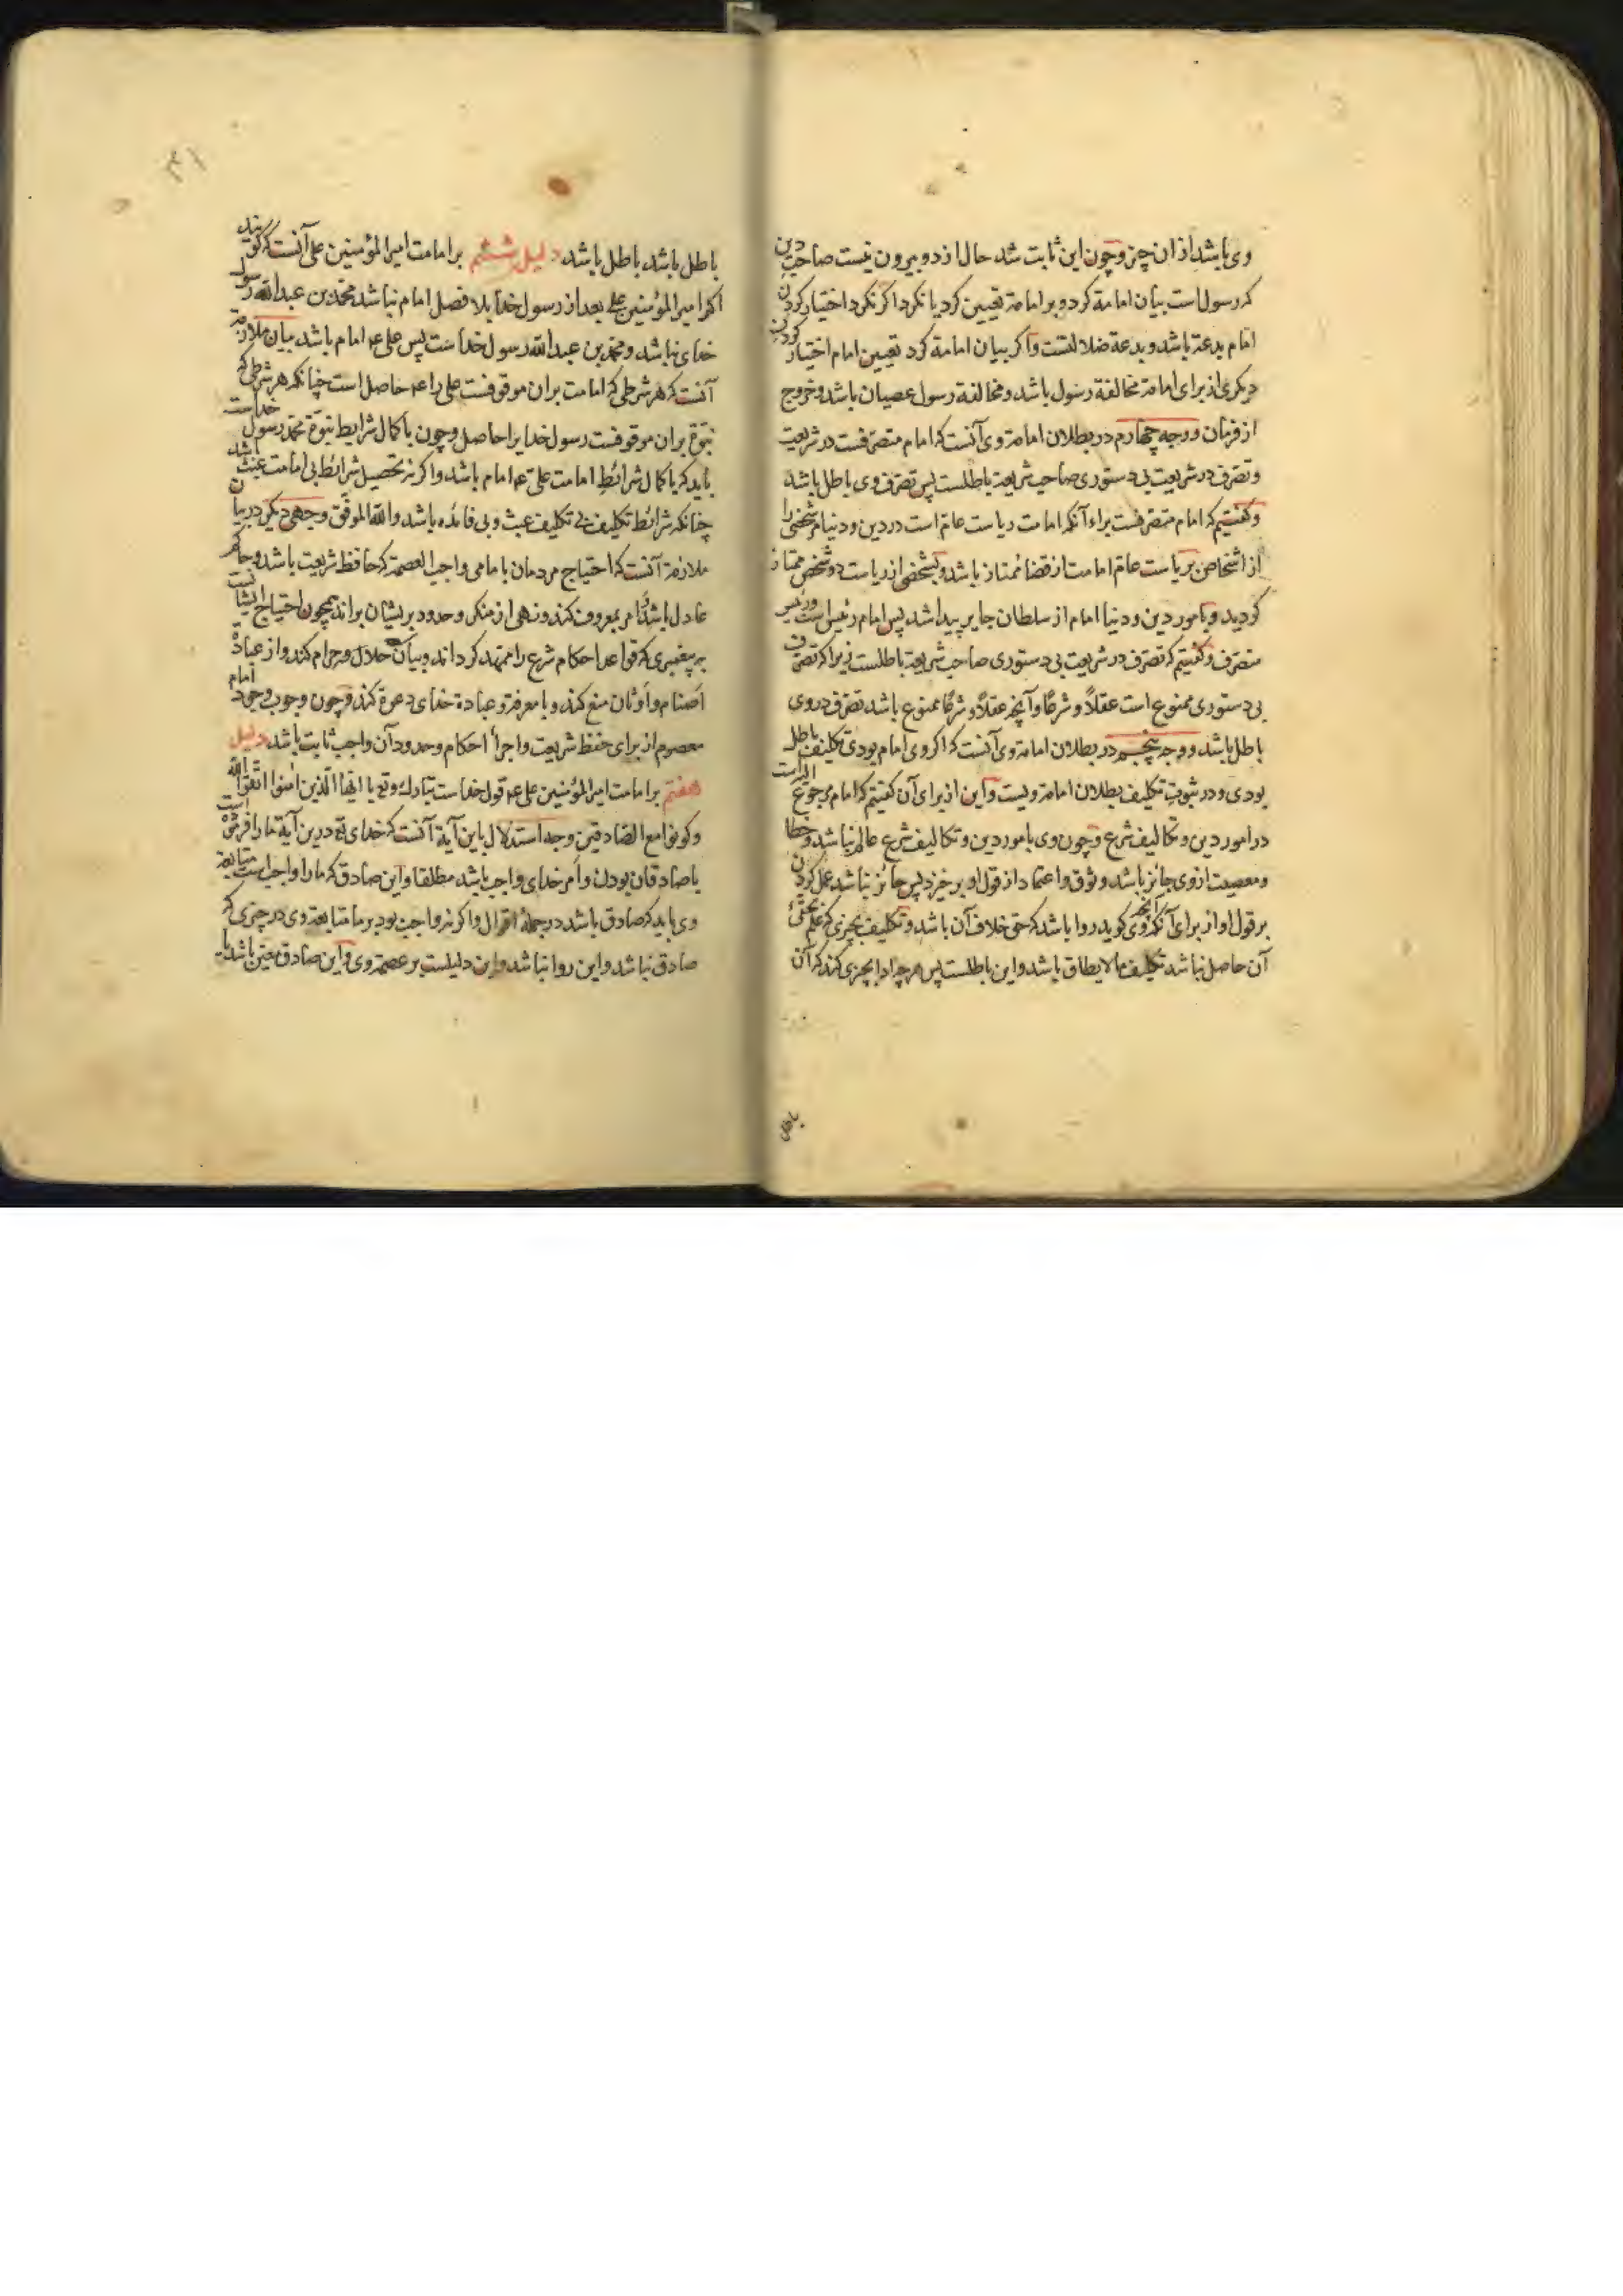 وی باشد از ان چیز و چون این ثابت شد حال از دو بیرون نیست صاحب دین
که رسول است بیان امامة کرد و بر امامة تعیین کرد یا نکرد اگر نکرد اختیار کردن
امام بدعة باشد و بدعة ضلالتست و اگر بیان امامة کرد تعیین امام اختیار کردن
دیگری از برای امامة مخالفة رسول باشد و مخالفة رسول عصیان باشد و خروج
از فرمان و وجه چهارم در بطلان امامة وی آنست که امام متصرفست در شریعت
و تصرف در شریعت بی دستوری صاحب شریعة باطلست پس تصرف وی باطل باشد
و گفتیم که امام متصرفست براء آنکه امامت ریاست عام است در دین و دنیا مر شخصی را
از اشخاص بریاست عام امامت از قضا ممتاز باشد و بشخصی از ریاست دو شخص ممتاز
گردید و بامور دین و دنیا امام از سلطان جایر پیدا شد پس امام رئیس است و رئیس
متصرف و گفتیم که تصرف در شریعت بی دستوری صاحب شریعة باطلست زیرا که تصرف
بی دستوری ممنوع است عقلاً و شرعًا و آنچه عقلاً و شرعًا ممنوع باشد تصرف در وی
باطل باشد و وجه پنجم در بطلان امامة وی آنست که اگر وی امام بودی تکلیف باطل
بودی و در ثبوت تکلیف بطلان امامة ویست و این از برای آن گفتیم که امام مرجوع الیه است
در امور دین و تکالیف شرع و چون وی بامور دین و تکالیف شرع عالم نباشد و خطا
و معصیت ازوی جائز باشد وثوق و اعتماد از قول او برخیزد پس جائز نباشد عمل کردن
بر قول او از برای آنکه آنچه وی گوید روا باشد که حق خلاف آن باشد و تکلیف بچیزی که علم بحقیّة
آن حاصل نباشد تکلیف ما لا یطاق باشد و این باطلست پس هر چه ادا بچیزی کند که آن
باطل
۳۱
باطل باشد باطل باشد دلیل ششم بر امامت امیر المؤمنین علی آنست که گویند
اگر امیر المؤمنین علی بعد از رسول خدا بلا فصل امام نباشد محمد بن عبد الله رسول
خدای نباشد و محمد بن عبد الله رسول خداست پس علی عم امام باشد بیان ملازمة
آنست که هر شرطی که امامت بران موقوفست علی را عم حاصل است چنانکه هر شرطی که
نبوّة بران موقوفست رسول خدا یرا حاصل و چون باکمال شرایط نبوّة محمد رسول خداست
باید که باکمال شرائط امامت علی عم امام باشد و اگر نه تحصیل شرائط بی امامت عبث باشد
چنانکه شرائط تکلیف بی تکلیف عبث و بی فائده باشد والله الموفق وجهی دیگر در بیان
ملازمة آنست که احتیاج مردمان بامامی واجب العصمة که حافظ شریعت باشد و حاکم
عادل باشد و امر بمعروف کند و نهی از منکر و حدود بریشان براند همچون احتیاج ایشانست
به پیغمبری که قواعد احکام شرع را ممهّد گرداند و بیان حلال و حرام کند و از عبادة
اصنام و اوثان منع کند و با معرفة و عبادة خدای دعوة کند و چون وجوب وجود امام
معصوم از برای حفظ شریعت و اجراء احکام و حدود آن واجب ثابت باشد دلیل
هفتم بر امامت امیر المؤمنین علی عم قول خداست تبارك وتع یا ایها الذین امنوا اتقوا الله
وکونوا مع الصادقین وجه استدلال باین آیة آنست که خدای تع درین آیة ما را فرموده است
با صادقان بودن و امر خدای واجب باشد مطلقا و این صادق که ما را واجب است متابعة
وی باید که صادق باشد در جملهٔ اقوال و اگر نه واجب بود بر ما متابعة وی در چیزی که
صادق نباشد و این روا نباشد و این دلیلست بر عصمة وی و این صادق معیّن باشد یا